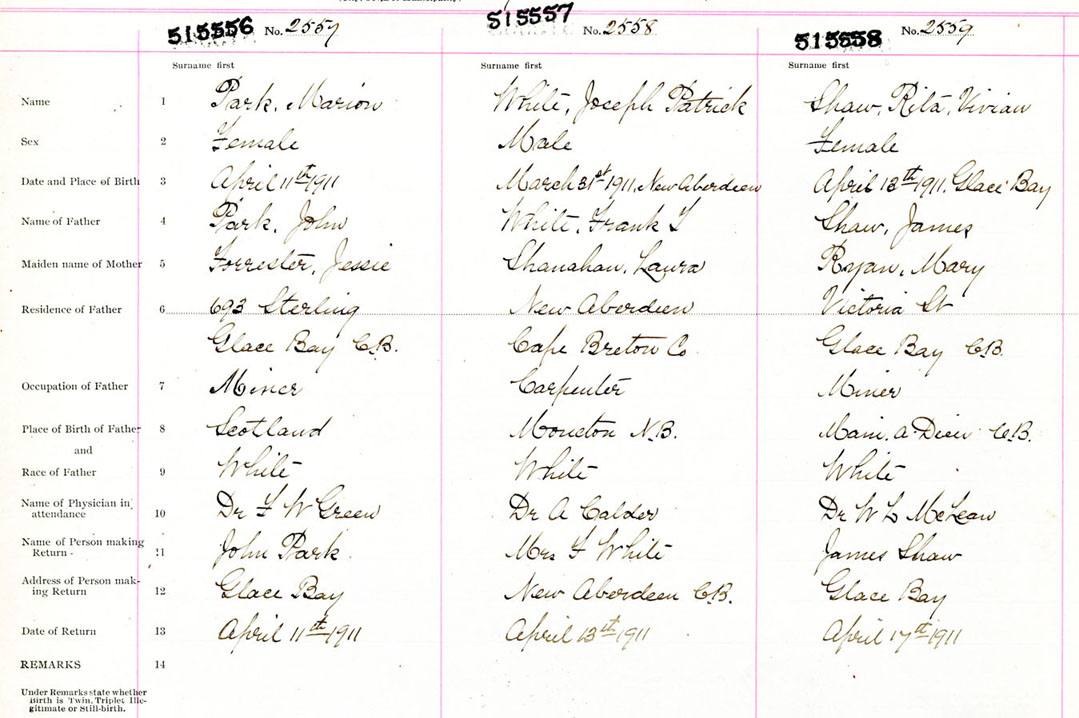 515556 No. 2557 515557 No. 2558 515558 No. 2559
Surname first Surname first Surname first
Name 1 Park, Marion White, Joseph Patrick Shaw, Rita, Vivian
Sex 2 Female Male Female
Date and Place of Birth 3 April 11th 1911 March 31st 1911, New Aberdeen April 13th 1911, Glace Bay
Name of Father 4 Park, John White, Frank Shaw, James
Maiden name of Mother 5 Forrester, Jessie Shanahan, Laura Ryan, Mary
Residence of Father 6 693 Sterling New Aberdeen Victoria St
Glace Bay C.B. Cape Breton Co Glace Bay C.B.
Occupation of Father 7 Miner Carpenter Miner
Place of Birth of Father 8 Scotland Moncton N.B. Main. a. Dieu C.B.
and
Race of Father 9 White White White
Name of Physician in
attendance 10 Dr F W Green Dr A Calder Dr W L McLean
Name of Person making
Return - 11 John Park Mrs F White James Shaw
Address of Person mak-
ing Return 12 Glace Bay New Aberdeen C.B. Glace Bay
Date of Return 13 April 11th 1911 April 13th 1911 April 17th 1911
REMARKS 14
Under Remarks state whether
Birth is Twin, Triplet, Ille-
gitimate or Still-birth.